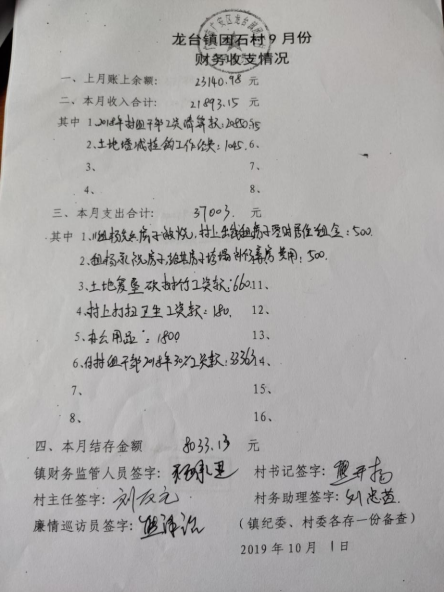 龙台镇团石村9月份
财务收支情况
一、上月账上余额： 23140.98 元
二、本月收入合计： 21893.15 元
其中 1、2018年村组干部工资清算款：20850.15
2、土地增减挂钩工作经费：1045. 6、
3、 7、
4、 8、
三、本月支出合计： 37003. 元
其中 1、 组杨 房子 ，村上 租房子 时居住租金：500.
2、 组杨 房子，给其房子 费用：500.
3、土地复垦砍树竹工资款：660. 11、
4、村上打扫卫生工资款：180. 12、
5、办公用品：1800 13、
6、付村组干部2018年 工资款：33363. 14、
7、 15、
8、 16、
四、本月结存金额 8033.13 元
镇财务监管人员签字： 村书记签字：
村主任签字： 村务助理签字：刘忠益
廉情巡访员签字： （镇纪委、村委各存一份备查）
2019 年 10 月 1 日